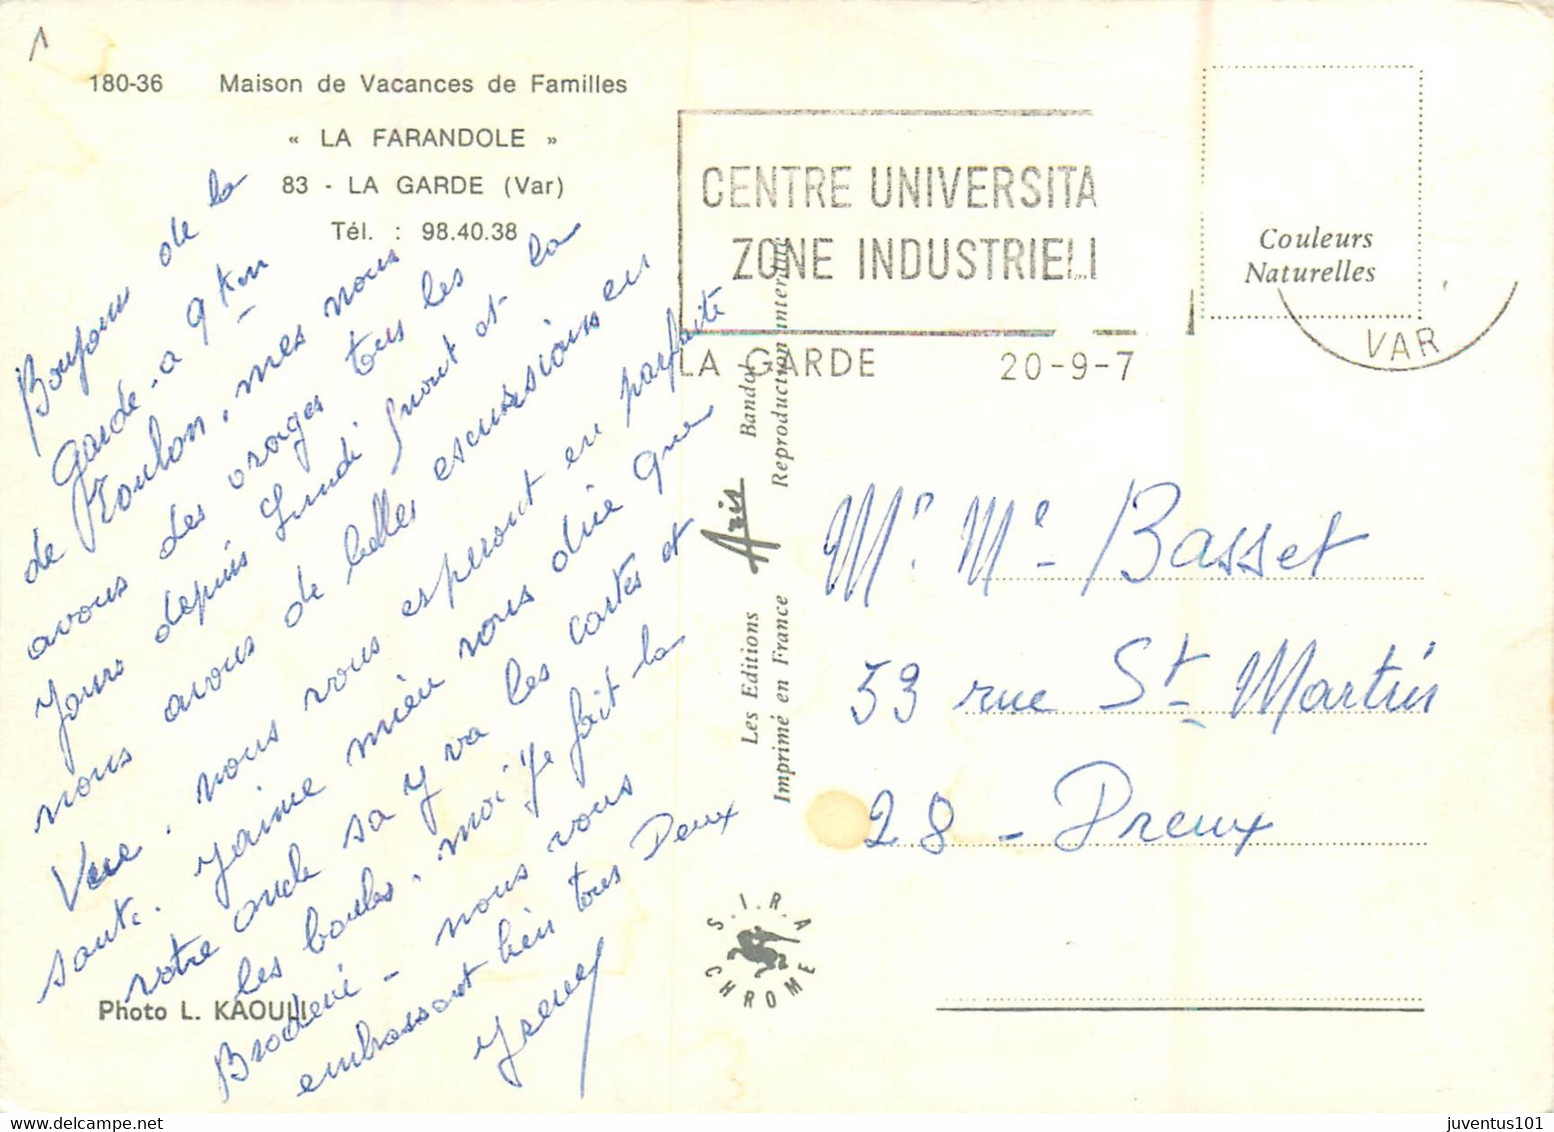 1
180-36 Maison de Vacances de Familles
« LA FARANDOLE »
83 - LA GARDE (Var)
Tél. : 98.40.38
Bonjour de la
Garde - a 9 km
de Toulon, mes nous
avons des orages tous les
Jours depuis Lundi Auront et la
nous avons de belles escurssions en
Vue, nous vous esperont en parfaite
santé. J'aime mieu vous dire que
votre oncle sa y va les cartes et
les boules, moi Je fait la
Broderi - nous vous
embrassant bien tous Deux
Irene
Photo L. KAOULI
CENTRE UNIVERSITA
ZONE INDUSTRIELL
LA GARDE 20-9-7
VAR
Couleurs
Naturelles
Les Editions Aris Bandol
Imprimé en France Reproduction interdite
S.I.R.A
CHROME
Mr. Me - Basset
53 rue St. Martin
28 - Dreux
juventus101